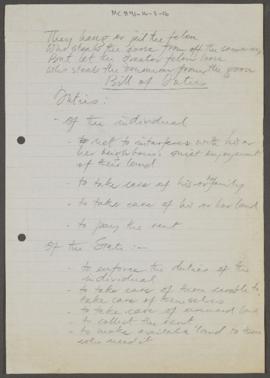 MC 841-16-3-16
They hang or jail the felon
Who steals the goose from off the common
But let the greater felon loose
Who steals the common from the goose
Bill of Duties
Duties:
- of the individual
- to not to interfere with his or
her neighbours quiet enjoyment
of their land
- to take care of his or her family
- to take care of his or her land
- to pay the rent
Of the State:-
- to enforce the duties of the
individual
- to take care of them unable to
take care of themselves
- to take care of unused land
- to collect the rent
- to make available land to them
who need it